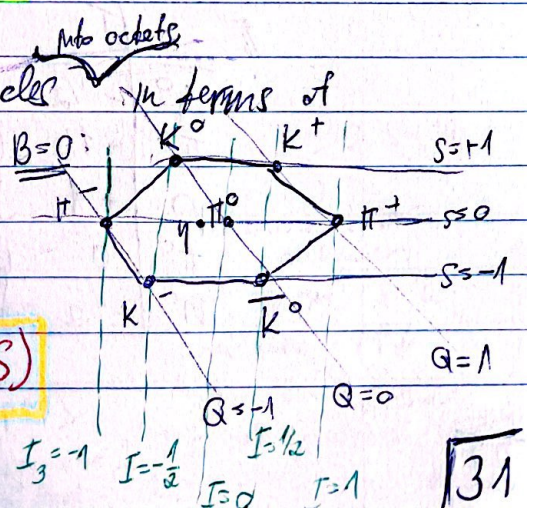 into octets
cles in terms of
K⁰ K⁺
B=0: S=+1
π⁻ η π⁰ π⁺ S=0
S=-1
K⁻ K̅⁰
S)
Q=1
Q=-1 Q=0
I₃=-1 I=-½ I=1/2
I=0 I=1
31